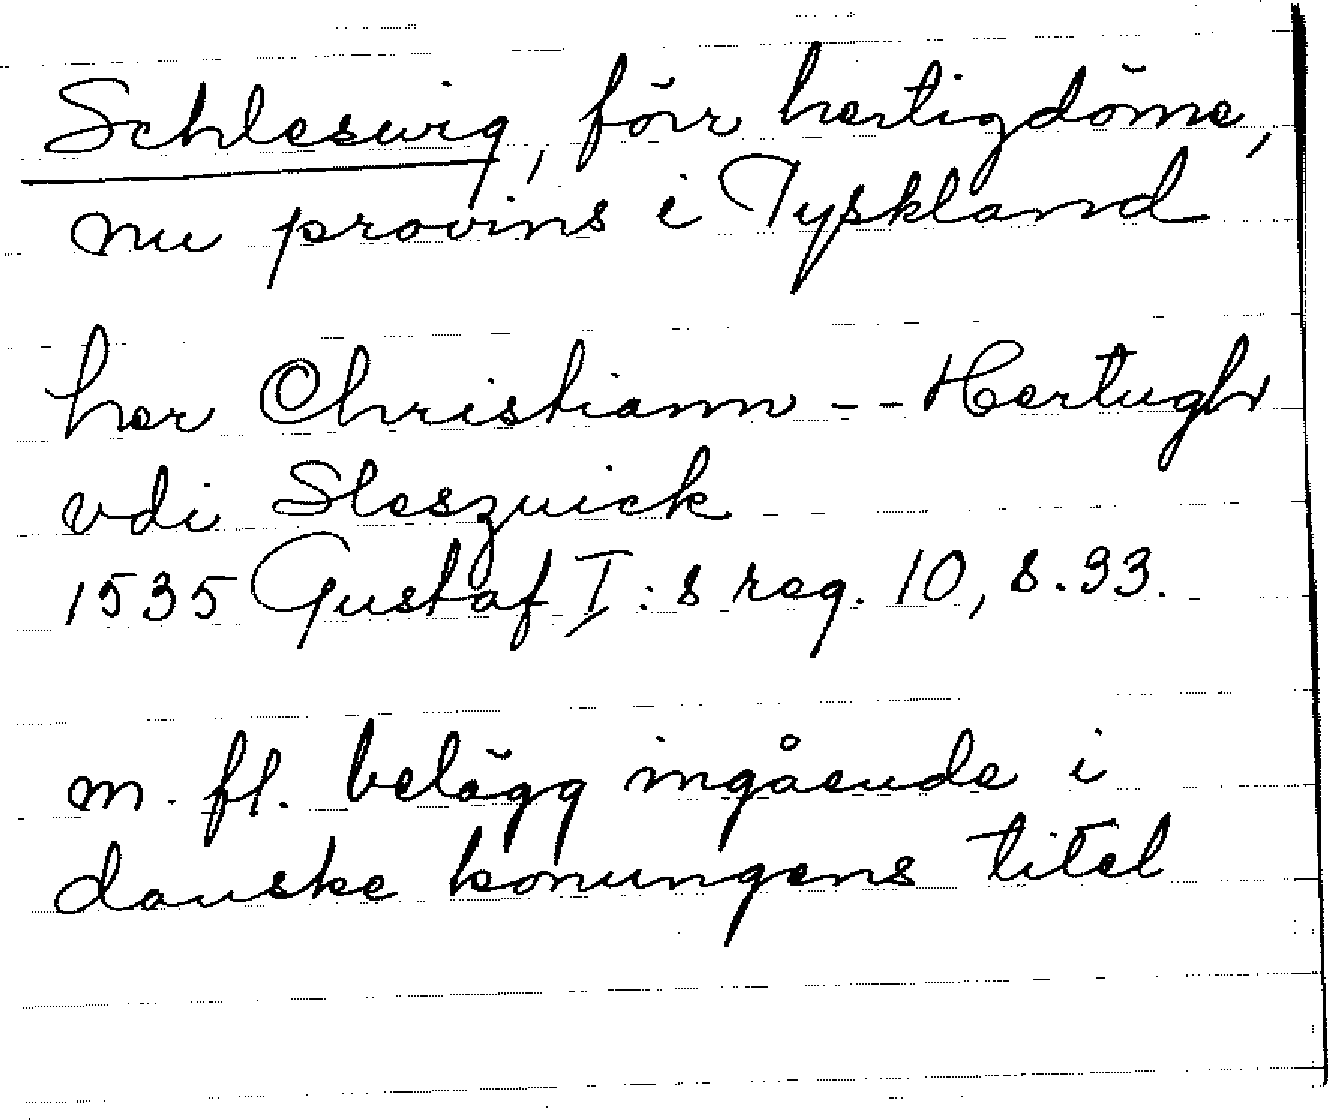 Schleswig, förr hertigdöme,
nu provins i Tyskland
her Christiann -- Hertugh
vdi Sleszuick
1535 Gustaf I:s reg. 10, s. 33.
m. fl. belägg ingående i
danske konungens titel